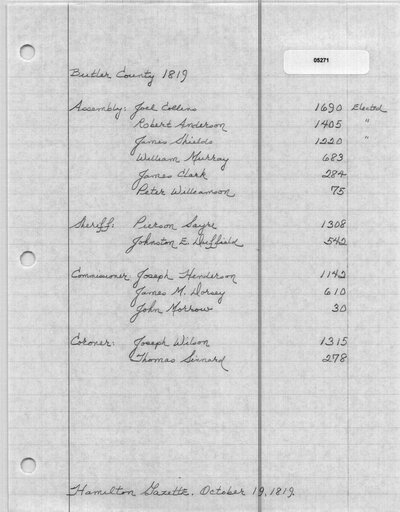 05271
Butler County 1819
Assembly: Joel Collins 1690 Elected
Robert Anderson 1405 "
James Shields 1220 "
William Murray 683
James Clark 284
Peter Williamson 75
Sheriff: Pierson Sayre 1308
Johnston E. Duffield 542
Commissioner Joseph Henderson 1142
James M. Dorsey 610
John Morrow 30
Coroner: Joseph Wilson 1315
Thomas Sinnard 278
Hamilton Gazette. October 19, 1819.